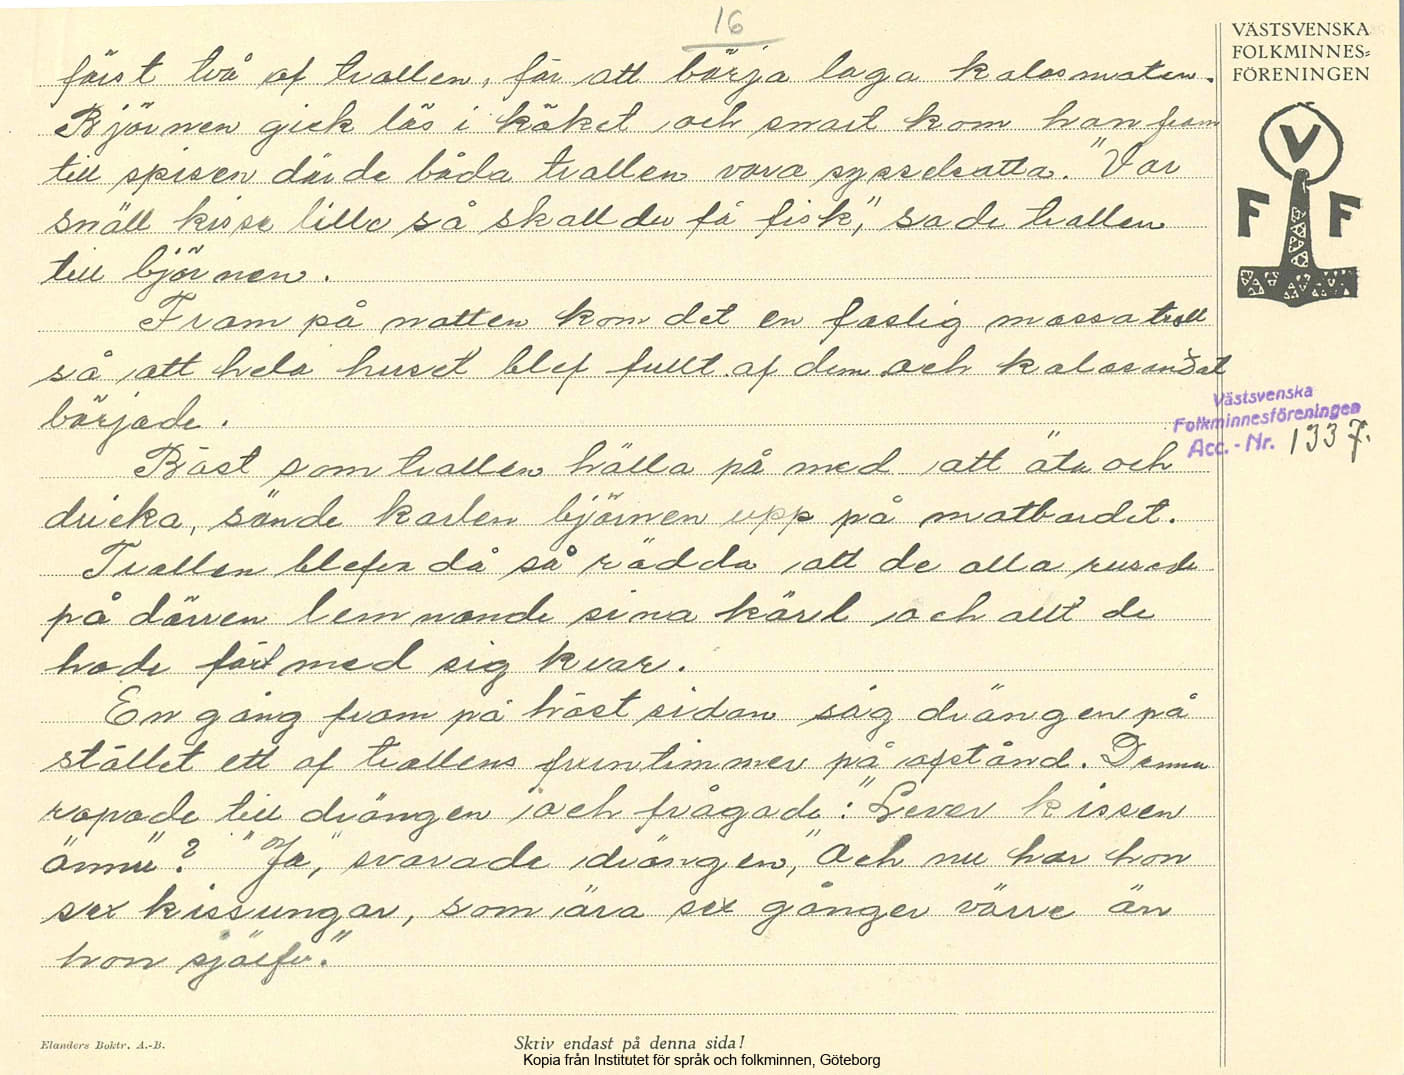 16
först två af trollen, för att börja laga kalasmaten.
Björnen gick lös i köket och snart kom han fram
till spisen där de båda trollen voro sysselsatta. "Var
snäll kisse lille så skall du få fisk", sade trollen
till björnen.
Fram på natten kom det en faslig massa troll
så att hela huset blef fullt af dem och kalasandet
började.
Bäst som trollen hålla på med att äta och
dricka, sände karlen björnen upp på matbordet.
Trollen blefvo då så rädda att de alla rusade
på dörren lemnande sina kärl och allt de
hade fört med sig kvar.
En gång fram på höstsidan såg drängen på
stället ett af trollens fruntimmer på afstånd. Denna
ropade till drängen och frågade: "Lever kissen
ännu"? "Ja", svarade drängen, "Och nu har hon
sex kissungar, som ära sex gånger värre än
hon sjelfv."
VÄSTSVENSKA
FOLKMINNES=
FÖRENINGEN
V
F F
Västsvenska
Folkminnesföreningen
Acc.-Nr. 1337.
Elanders Boktr. A.-B.
Skriv endast på denna sida!
Kopia från Institutet för språk och folkminnen, Göteborg